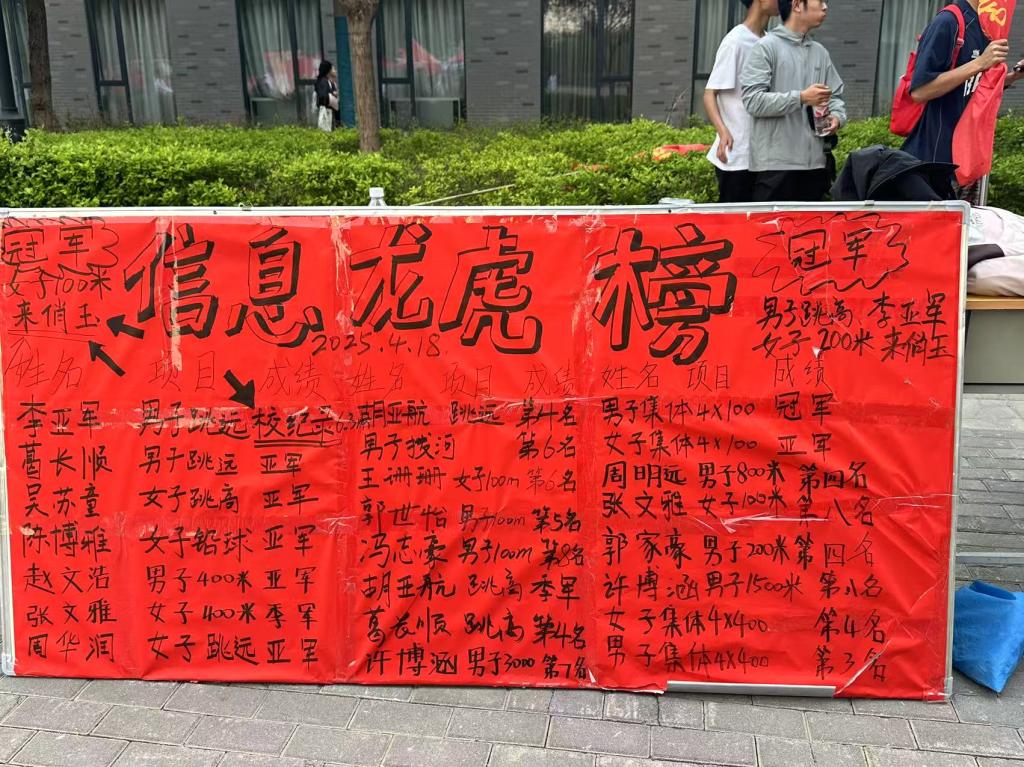 冠军
女子100米
来俏玉
信息龙虎榜
2025.4.18.
冠军
男子跳高 李亚军
女子200米 来俏玉
姓名 项目 成绩
李亚军 男子跳远 校纪录
葛长顺 男子跳远 亚军
吴苏童 女子跳高 亚军
陈博雅 女子铅球 亚军
赵文浩 男子400米 亚军
张文雅 女子400米 季军
周华润 女子跳远 亚军
姓名 项目 成绩
胡亚航 跳远 第4名
男子拔河 第6名
王珊珊 女子100m 第6名
郭世怡 男子100m 第5名
冯志豪 男子100m 第8名
胡亚航 跳高 季军
葛长顺 跳高 第4名
许博涵 男子3000 第7名
姓名 项目 成绩
男子集体4X100 冠军
女子集体4X100 亚军
周明远 男子800米 第四名
张文雅 女子100米 第八名
郭家豪 男子200米 第四名
许博涵 男子1500米 第八名
女子集体4X400 第4名
男子集体4X400 第3名